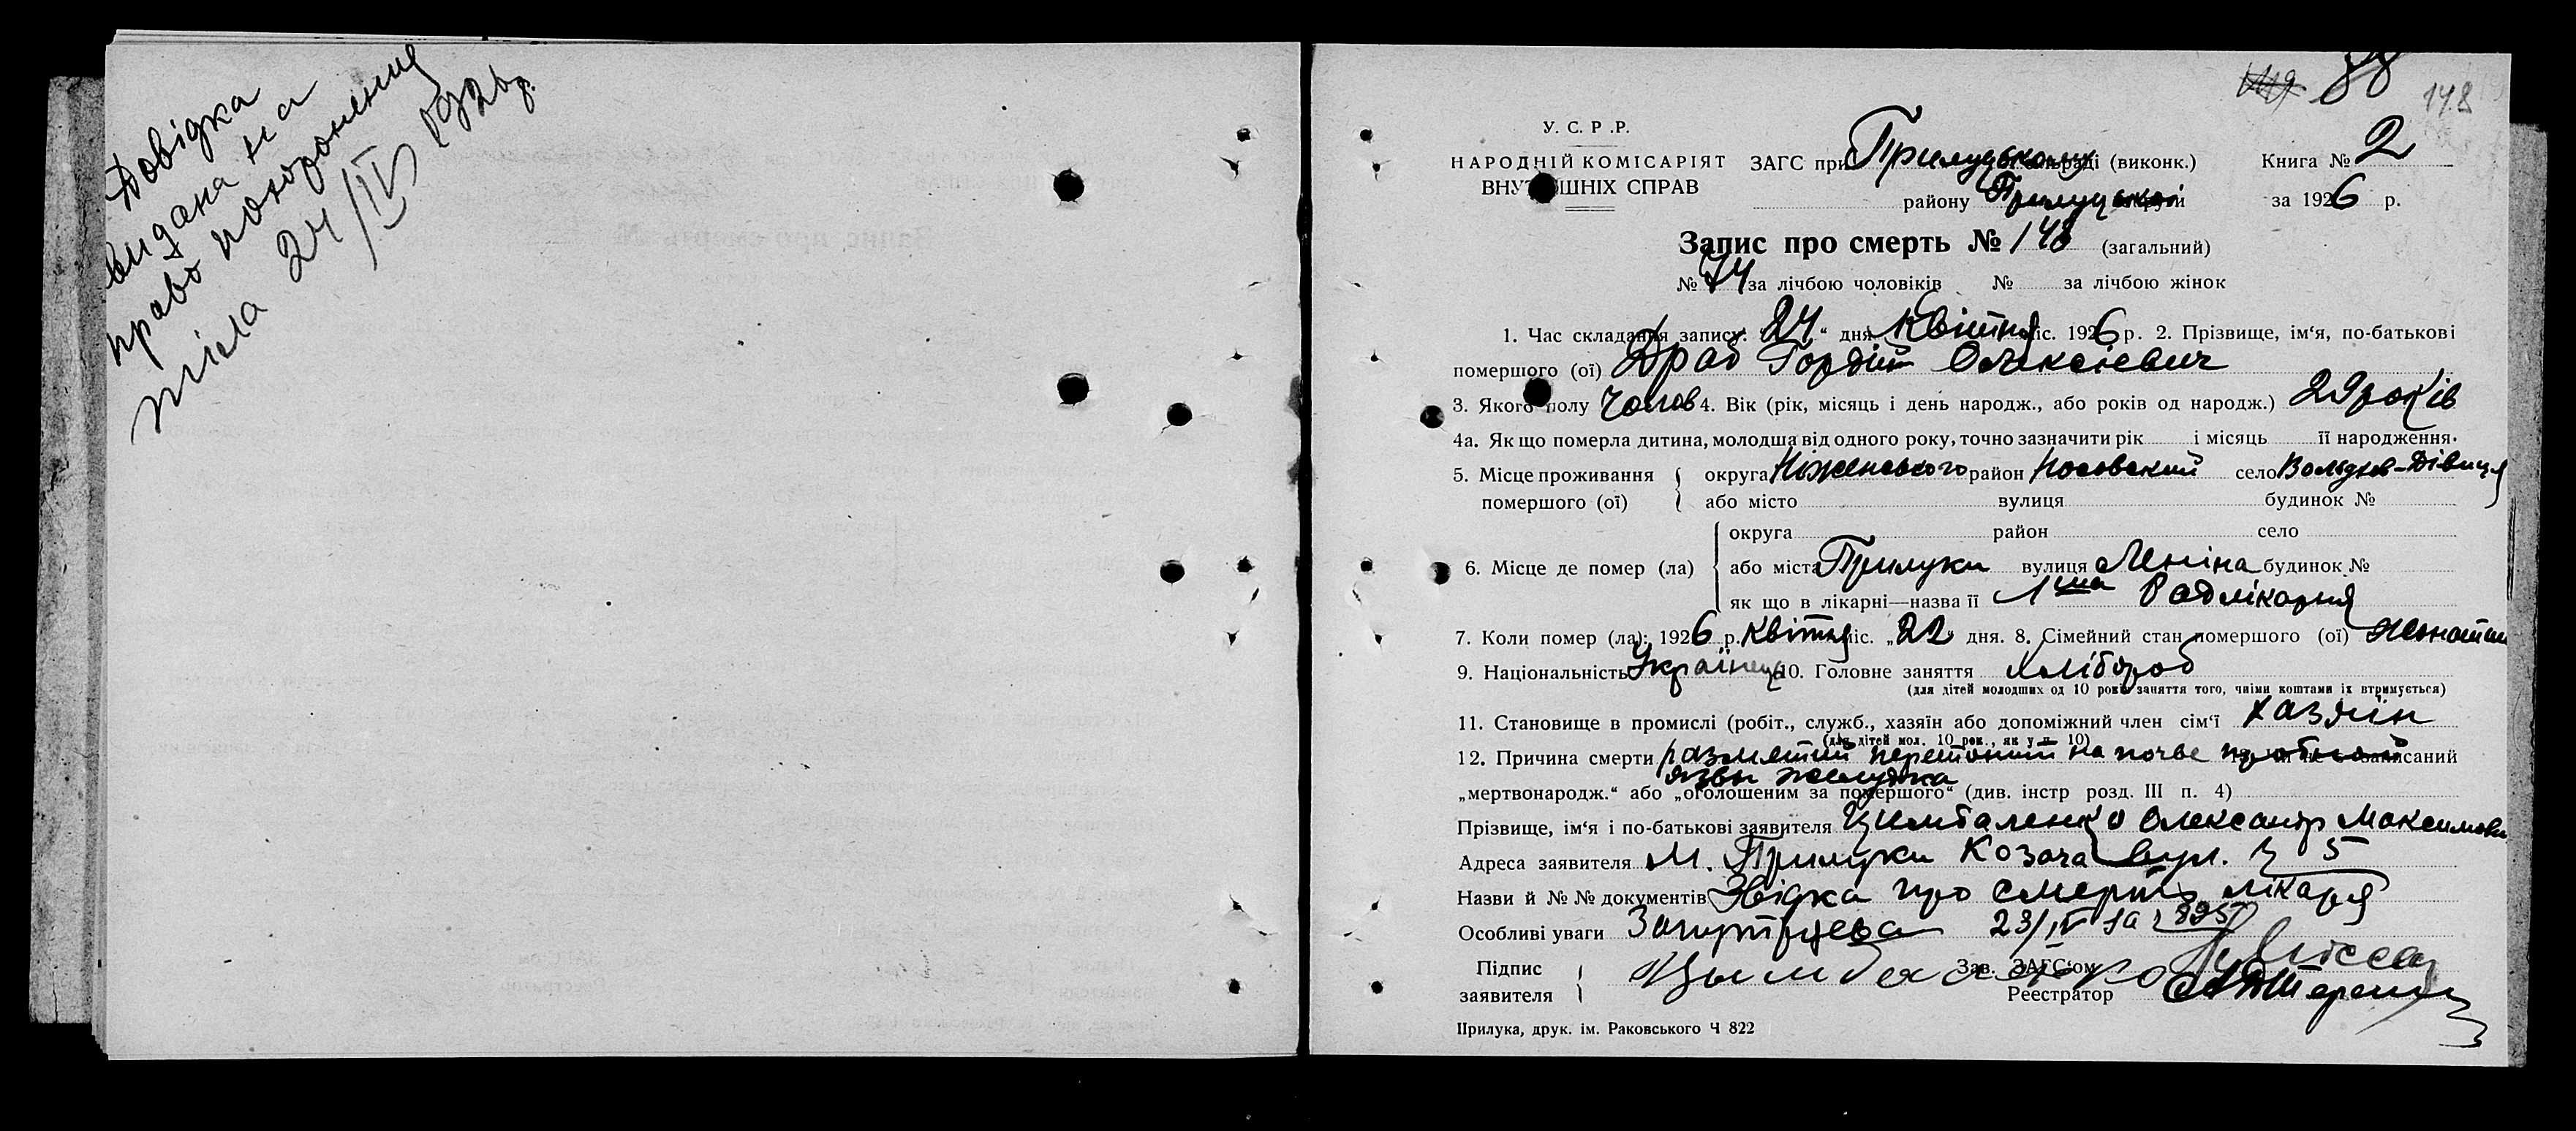 Довідка
видана на
право похоронення
тіла 24/IV 1926 р.
88
148
У. С. Р. Р.
НАРОДНІЙ КОМІСАРІЯТ
ВНУТРІШНІХ СПРАВ
ЗАГС при Прилуцькому раді (виконк.)
району Прилуцької округи
Книга № 2
за 1926 р.
Запис про смерть № 148 (загальний)
№ 74 за лічбою чоловіків № за лічбою жінок
1. Час складання запису: „24“ дня Квітня міс. 1926 р. 2. Прізвище, ім‘я, по-батькові
помершого (ої) Драб Гордій Олексієвич
3. Якого полу Чолов 4. Вік (рік, місяць і день народж., або років од народж.) 29 років
4а. Як що померла дитина, молодша від одного року, точно зазначити рік і місяць її народження.
5. Місце проживання округа Ніженського район Носовский село Вольдков-Дівиця
помершого (ої) або місто вулиця будинок №
округа район село
6. Місце де помер (ла) або міста Прилуки вулиця Леніна будинок №
як що в лікарні—назва її 1ша Радлікарня
7. Коли помер (ла): 1926 р. Квітня міс. „22 дня. 8. Сімейний стан помершого (ої) женатий
9. Національність Українець 10. Головне заняття Хлібороб
(для дітей молодших од 10 років заняття того, чиїми коштами їх втримується)
11. Становище в промислі (робіт., служб., хазяїн або допоміжний член сім‘ї Хазяїн
(для дітей мол. 10 рок., як у п. 10)
12. Причина смерти разлитий перетонит на почве записаний
язвы желудка
„мертвонародж.“ або „оголошеним за помершого“ (див. інстр розд. III п. 4)
Прізвище, ім‘я і по-батькові заявителя Цимбаленко Олександр Максимови
Адреса заявителя М. Прилуки Козача вул. 5
Назви й №№ документів Звідка про смерть лікаря
Особливі уваги 23/IV за 895
Підпис
заявителя
Зав. ЗАГС‘ом
Реєстратор
Прилука, друк. ім. Раковського Ч 822